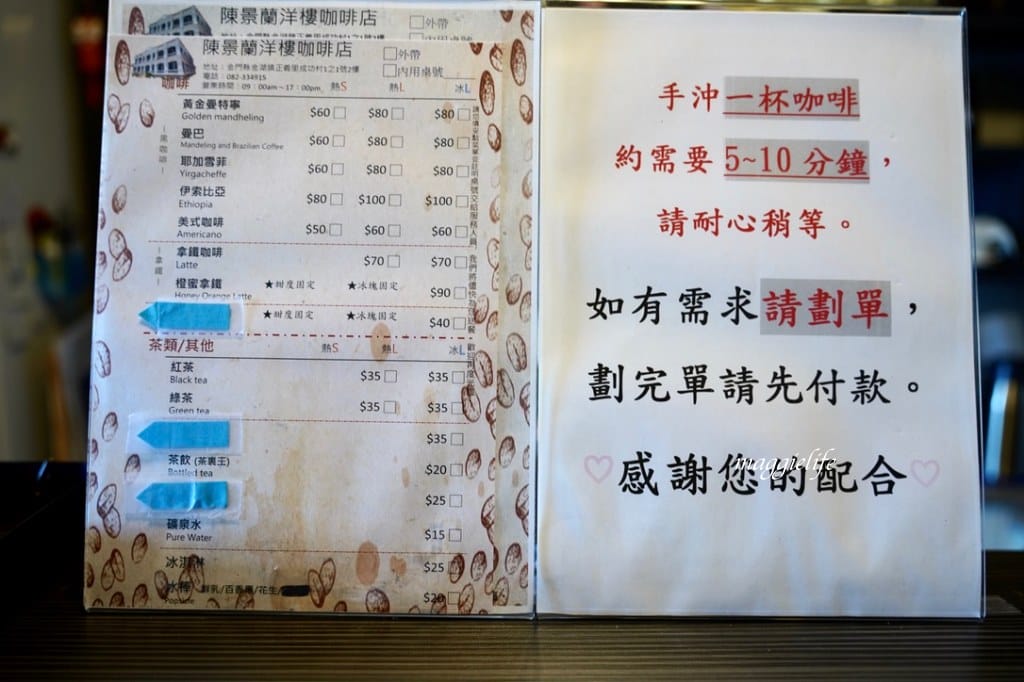 陳景蘭洋樓咖啡店
外帶
陳景蘭洋樓咖啡店
外帶
內用桌號
地址：金門縣金湖鎮正義里成功村1之1號2樓
電話：082-334915
營業時間：09：00am~17：00pm
咖啡 熱S 熱L 冰L
黑咖啡
黃金曼特寧 $60 $80 $80
Golden mandheling
曼巴 $60 $80 $80
Mandeling and Brazilian Coffee
耶加雪菲 $60 $80 $80
Yirgacheffe
伊索比亞 $80 $100 $100
Ethiopia
美式咖啡 $50 $60 $60
Americano
拿鐵
拿鐵咖啡 $70 $70
Latte
橙蜜拿鐵 ★甜度固定 ★冰塊固定 $90
Honey Orange Latte
★甜度固定 ★冰塊固定 $40
茶類/其他 熱S 熱L 冰L
紅茶 $35 $35
Black tea
綠茶 $35 $35
Green tea
$35
茶飲 (茶裏王) $20
Bottled tea
$25
礦泉水 $15
Pure Water
冰淇淋 $25
冰棒 鮮乳/百香果/花生/ $20
Popsicle
手沖一杯咖啡
約需要 5~10 分鐘，
請耐心稍等。
如有需求請劃單，
劃完單請先付款。
♡感謝您的配合♡
maggielife